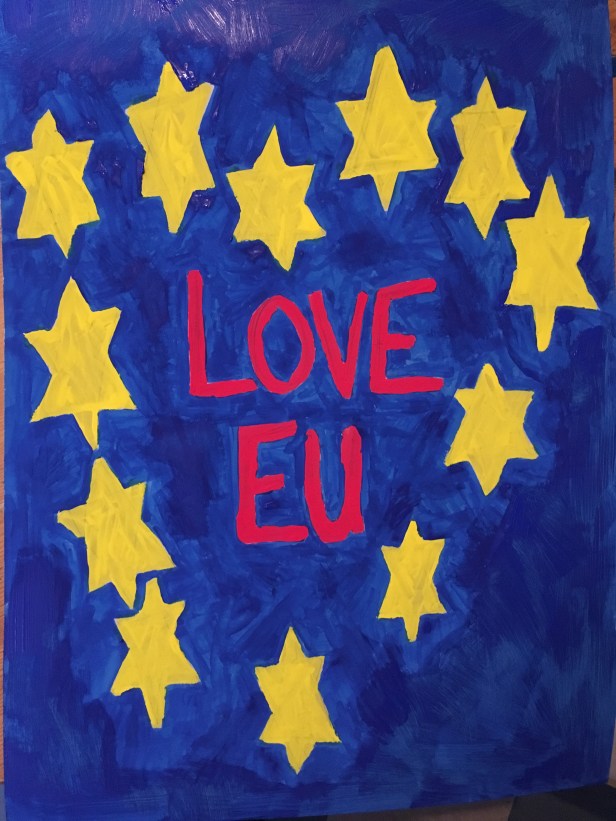 LOVE
EU